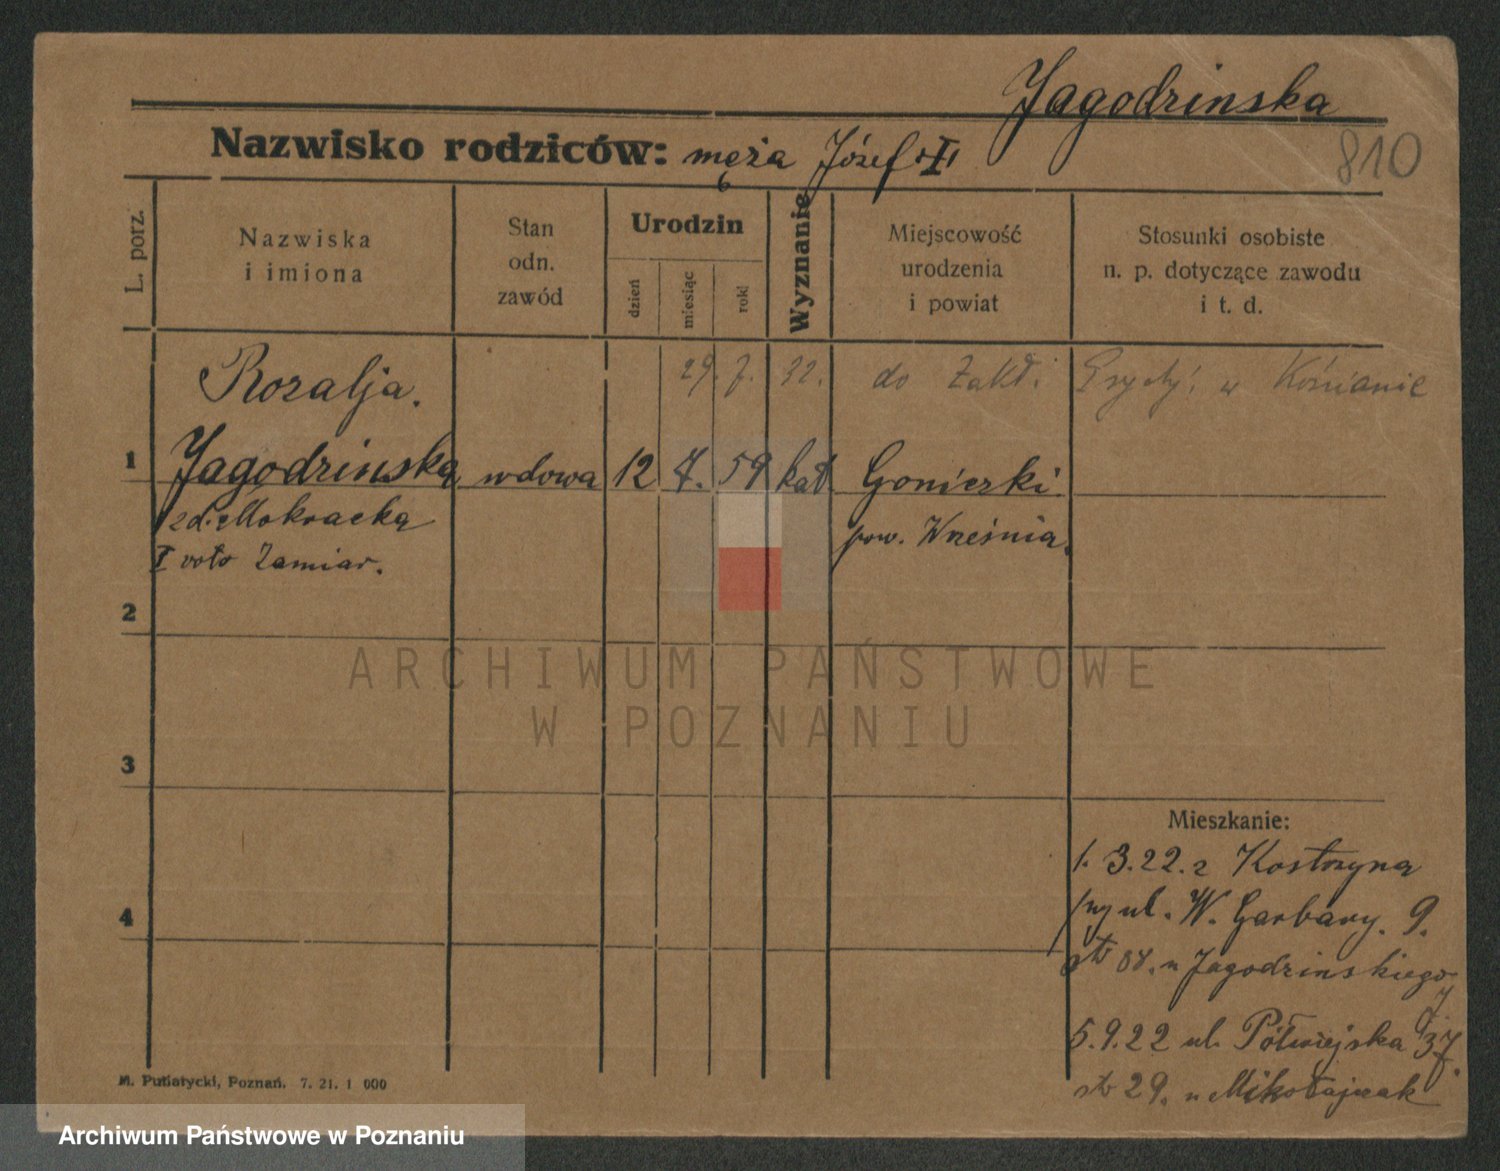 Jagodzinska
Nazwisko rodziców: męża Józef I
810
L. porz.
Nazwiska
i imiona
Stan
odn.
zawód
Urodzin
dzień
miesiąc
rok
Wyznanie
Miejscowość
urodzenia
i powiat
Stosunki osobiste
n. p. dotyczące zawodu
i t. d.
Rozalja.
29. 7. 32. do Zakł. Psych. w Kościanie
1 Jagodzinska wdowa 12 7. 59 kat Goniczki
zd. Mokracka
I voto Zamiar.
pow. Września.
2
3
4
Mieszkanie:
1. 3. 22. z Kostrzyna
ul. W. Garbary. 9.
Jagodzinskiego
5.9.22 ul. Półwiejska 37.
29. u Mikołajczak
M. Putiatycki, Poznań. 7. 21. 1 000
ARCHIWUM PAŃSTWOWE
W POZNANIU
Archiwum Państwowe w Poznaniu